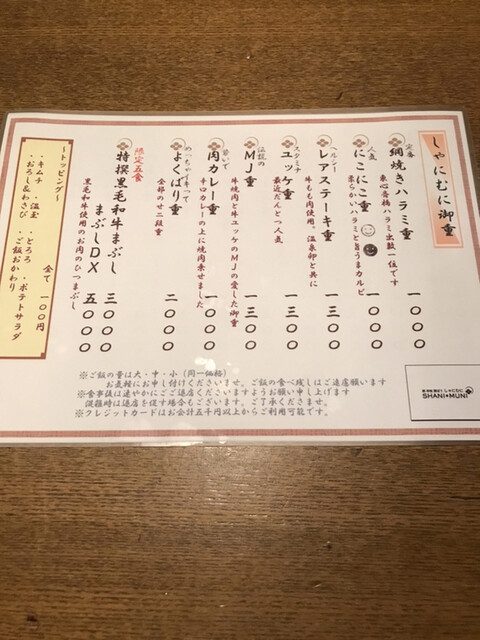 しゃにむに御重
定番
網焼きハラミ重 一〇〇〇
東心斎橋ハラミ出数一位です
人気
にこにこ重 一〇〇〇
柔らかいハラミと旨うまカルビ
ヘルシー
レアステーキ重 一三〇〇
牛もも肉使用。温泉卵と共に
スタミナ
ユッケ重 一三〇〇
最近だんとつ人気
伝説の
MJ重 一三〇〇
牛焼肉と牛ユッケのMJの愛した御重
勢いで
肉カレー重 一〇〇〇
辛口カレーの上に焼肉乗せました
めっちゃイキって
よくばり重 二〇〇〇
全部のせ二段重
限定五食
特撰黒毛和牛まぶし 三〇〇〇
まぶしDX 五〇〇〇
黒毛和牛使用のお肉のひつまぶし
～トッピング～
・キムチ ・温玉 ・とろろ ・ポテトサラダ
・おろし&わさび ・ご飯おかわり
全て 一〇〇円
※ご飯の量は大・中・小(同一価格)
お気軽にお申し付けくださいませ。ご飯の食べ残しはご遠慮願います
※食事後は速やかにご退店くださいますようお願い申し上げます
混雑時は退店を促す場合もございます。ご了承くださいませ。
※クレジットカードはお会計五千円以上からご利用可能です。
しゃにむに
SHANI★MUNI